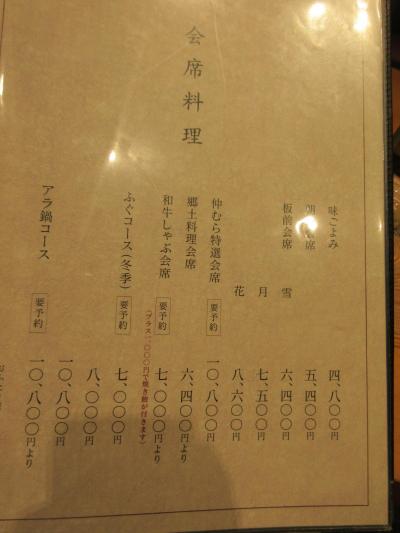 会席料理
味ごよみ 四、八〇〇円
会席 五、四〇〇円
板前会席 雪 六、四〇〇円
月 七、五〇〇円
花 八、六〇〇円
仲むら特選会席 要予約 一〇、八〇〇円
郷土料理会席 六、四〇〇円より
和牛しゃぶ会席 要予約 七、〇〇〇円より
(プラス一、〇〇〇円で焼き鮑が付きます)
ふぐコース(冬季) 要予約 七、〇〇〇円
八、〇〇〇円
一〇、八〇〇円
アラ鍋コース 要予約 一〇、八〇〇円より